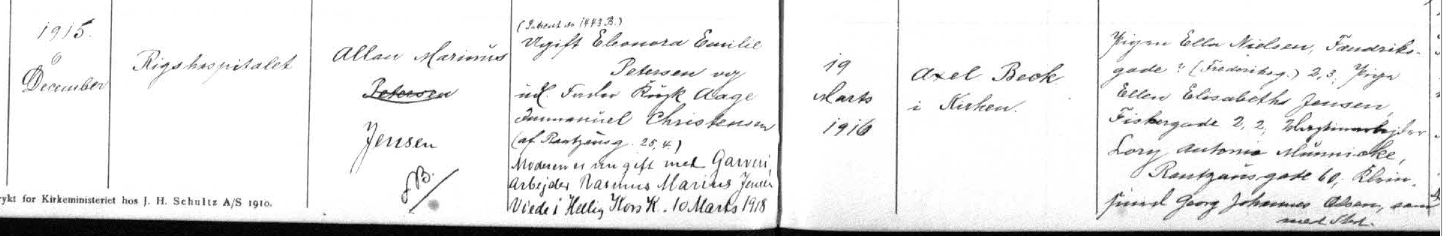 1915.
6
December
Rigshospitalet
Allan Marinus
Petersen
Jensen
(Patient No 1443 B.)
Ugift Eleonora Emilie
Petersen
udl. Fader Aage
Immanuel Christensen
(af Rantzausg. 25, 4.)
Moderen er nu gift med Garveri
Arbejder Rasmus Marius Jensen
Viede i Hellig Kors K. 10 Marts 1918
19
Marts
1916
Axel Beck
i Kirken.
Pigen Ella Nielsen,
gade ? (Frederiksg.) 2, 3, Pige
Ellen Elisabeth Jensen,
Fiskergade 2, 2,
Antonio
Rantzausgade 60,
Georg Johannes Olsen, som
med Sted.
ykt for Kirkeministeriet hos J. H. Schultz A/S 1910.